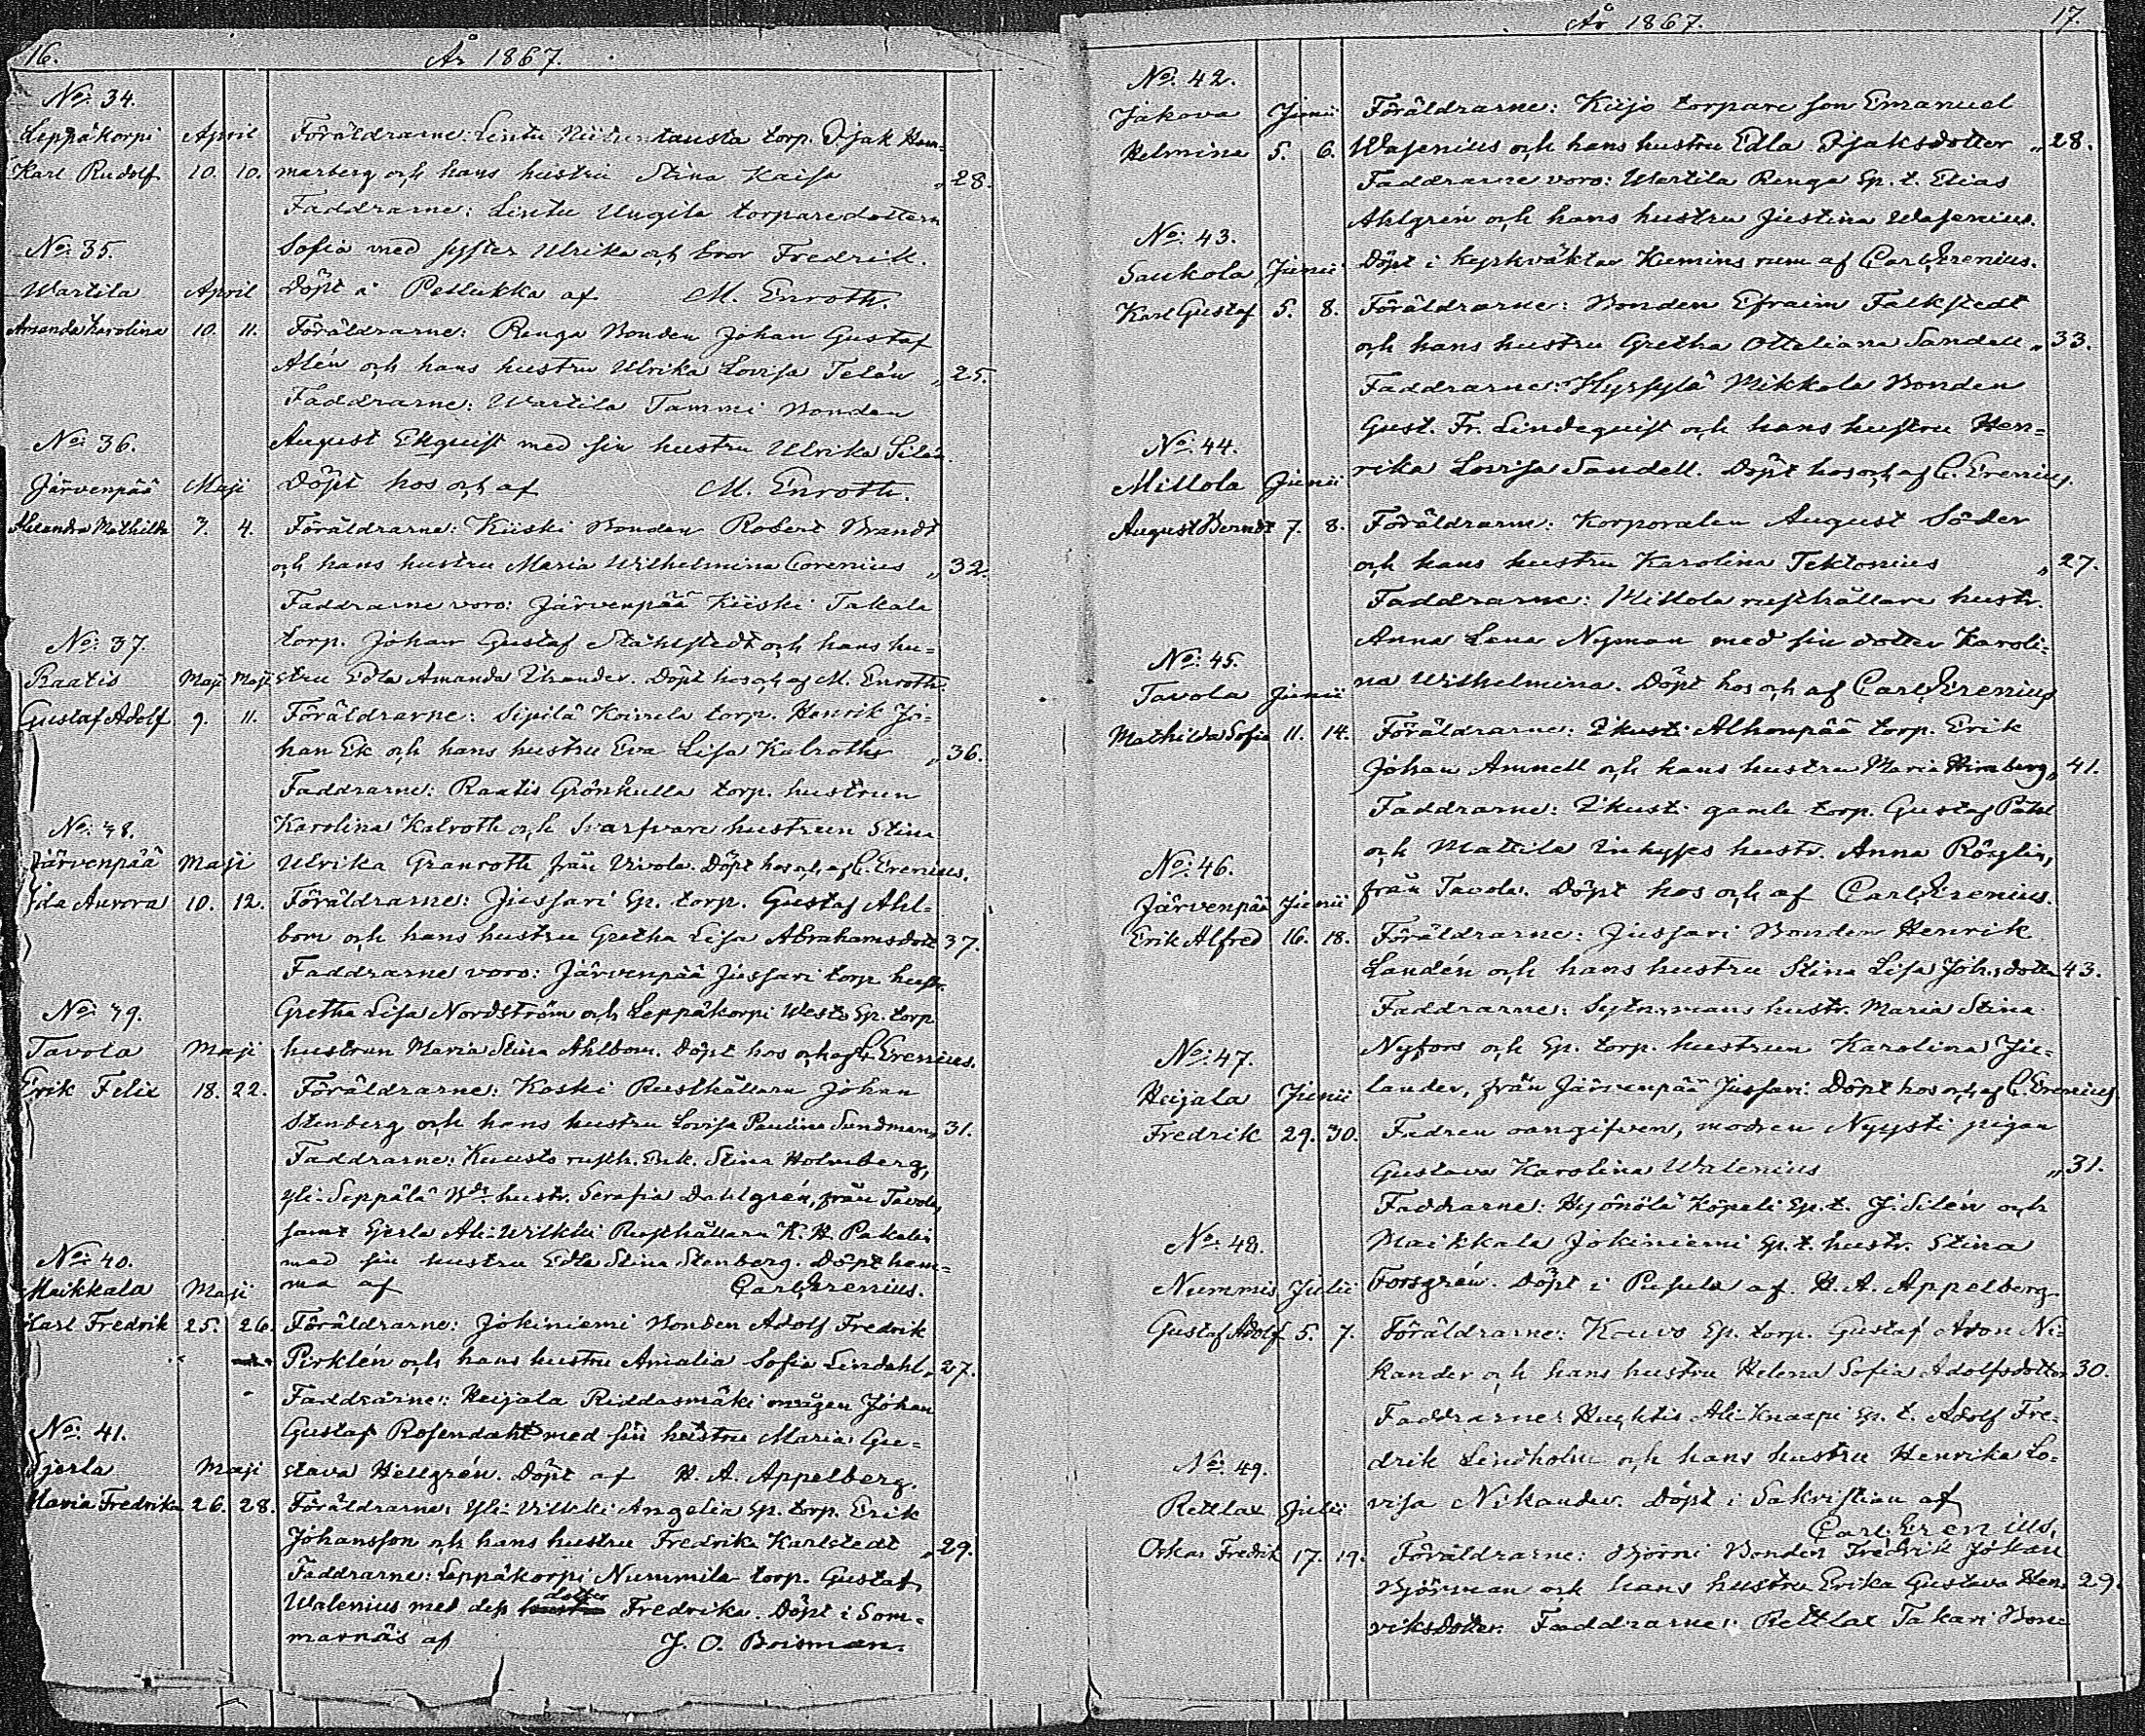 16.
År 1867.
No: 34.
Leppäkorpi April Föräldrarne: Lintu tausta torp. Isak Ham=
Karl Rudolf 10. 10. marberg och hans hustru Stina Kaisa „ 28.
Faddrarne: Lintu Ungila torparedottern
No: 35. Sofia med syster Ulrika och bror Fredrik.
Wartila April Döpt i Petlukka af M. Enroth.
Amanda Karolina 10. 11. Föräldrarne: Renga Bonden Johan Gustaf
Alén och hans hustru Ulrika Lovisa Telén „ 25.
Faddrarne: Wartila Tammi Bonden
No: 36. August Ekquist med sin hustru Ulrika Silén.
Järvenpää Maji Döpt hos och af M. Enroth.
Alexandra Mathilda 3. 4. Föräldrarne: Kiiski Bonden Robert Brandt
och hans hustru Maria Wilhelmina Corenius „ 32.
Faddrarne voro: Järvenpää Kiiski Takala
No: 37. torp. Johan Gustaf Ståhlstedt och hans hu=
Raatis Maji Maji stru Edla Amanda Thander. Döpt hos och af M. Enroth.
Gustaf Adolf 9. 11. Föräldrarne: Sipilä Koivula torp. Henrik Jo=
han Ek och hans hustru Eva Lisa Kalroth „ 36.
Faddrarne: Raatis Grönkulla torp. hustrun
No: 38. Karolina Kalroth och svarfvare hustrun Stina
Järvenpää Maji Ulrika Granroth från Vivola. Döpt hos och af C. Erenius.
Ida Aurora 10. 12. Föräldrarne: Jussari Sp. torp. Gustaf Ahl=
bom och hans hustru Gretha Lisa Abrahamsdott. 37.
Faddrarne voro: Järvenpää Jussari torp. hustr.
No: 39. Gretha Lisa Nordström och Leppäkorpi Westo Sp. torp.
Tavola Maji hustrun Maria Stina Ahlbom. Döpt hos och af C. Erenius.
Erik Felix 18. 22. Föräldrarne: Koski Rusthållaren Johan
Stenberg och hans hustru Lovisa Paulina Sundman „ 31.
Faddrarne: Kuusto rusth. Enk. Stina Holmberg,
Yli-Seppälä Bds hustr. Serafia Dahlgrén, från Tavola,
samt Gerla Ali-Wilkki Rusthållaren K. H. Pakalin
No: 40. med sin hustru Edla Stina Stenberg. Döpt hem=
Maikkala Maji ma af Carl Erenius.
Karl Fredrik 25. 26. Föräldrarne: Jokiniemi Bonden Adolf Fredrik
Pirklén och hans hustru Amalia Sofia Lindahl „ 27.
Faddrarne: Heijala Riddasmäki mågen Johan
No: 41. Gustaf Rosendahl med sin hustru Maria Gu=
Gerla Maji stava Hellgrén. Döpt af H. A. Appelberg.
Maria Fredrika 26. 28. Föräldrarne: Yli-Vilkki Angelia Sp. torp. Erik
Johansson och hans hustru Fredrika Karlstedt „ 29.
Faddrarne: Leppäkorpi Nummila torp. Gustaf
Walenius med dess hustru dotter Fredrika. Döpt i Som=
marnäs af J. O. Boisman.
År 1867.
17.
No: 42.
Jakova Junii Föräldrarne: Kiijo torpare son Emanuel
Helmina 5. 6. Wasenius och hans hustru Edla Isaksdotter „ 28.
Faddrarne voro: Wartila Renga Sp. t. Elias
Ahlgrén och hans hustru Justina Wasenius.
No: 43.
Saukola Junii Döpt i kyrkväktar Kumins rum af Carl Erenius.
Karl Gustaf 5. 8. Föräldrarne: Bonden Efraim Falkstedt
och hans hustru Gretha Otteliana Sandell „ 33.
Faddrarne: Hyrsylä Mikkola Bonden
Gust. Fr. Lindequist och hans hustru Hen=
No: 44.
Millola Junii rika Lovisa Sandell. Döpt hos och af C. Erenius.
August Berndt 7. 8. Föräldrarne: Korporalen August Söder
och hans hustru Karolina Tektonius „ 27.
Faddrarne: Millola rusthållare hustr.
Anna Lena Nyman med sin dotter Karoli=
No: 45.
Tavola Junii na Wilhelmina. Döpt hos och af Carl Erenius.
Mathilda Sofia 11. 14. Föräldrarne: Alhonpää torp. Erik
Johan Amnell och hans hustru Maria Hirnberg „ 41.
Faddrarne: gamle torp. Gustaf Påhl
och Mattila hustr. Anna Röglin,
No: 46.
Järvenpää Junii från Tavola. Döpt hos och af Carl Erenius.
Erik Alfred 16. 18. Föräldrarne: Jussari Bonden Henrik
Landén och hans hustru Stina Lisa Joh:sdotter 43.
Faddrarne: Sytn:mans hustr. Maria Stina
No: 47. Nyfors och Sp. torp. hustrun Karolina Ju=
Heijala Junii lander, från Järvenpää Jussari. Döpt hos och af C. Erenius.
Fredrik 29. 30. Fadren oangifven, modren Nyysti pigan
Gustava Karolina Walenius „ 31.
Faddrarne: Hyönölä Köpeli Sp. t. J. Silén och
No: 48. Maikkala Jokiniemi Sp. t. hustr. Stina
Nummis Julii Forsgrén. Döpt i Pusula af H. A. Appelberg.
Gustaf Adolf 5. 7. Föräldrarne: Kouvo Sp. torp. Gustaf Aron Ni=
kander och hans hustru Helena Sofia Adolfsdotter 30.
Faddrarne: Huhtis Ali-Knaapi Sp. t. Adolf Fre=
No: 49. drik Lindholm och hans hustru Henrika Lo=
Rettlax Julii visa Nikander. Döpt i Sakristian af
Carl Erenius.
Oskar Fredrik 17. 19. Föräldrarne: Björni Bonden Fredrik Johan
Björman och hans hustru Erika Gustava Hen= 29.
riksdotter. Faddrarne: Rettlax Takari Bon=